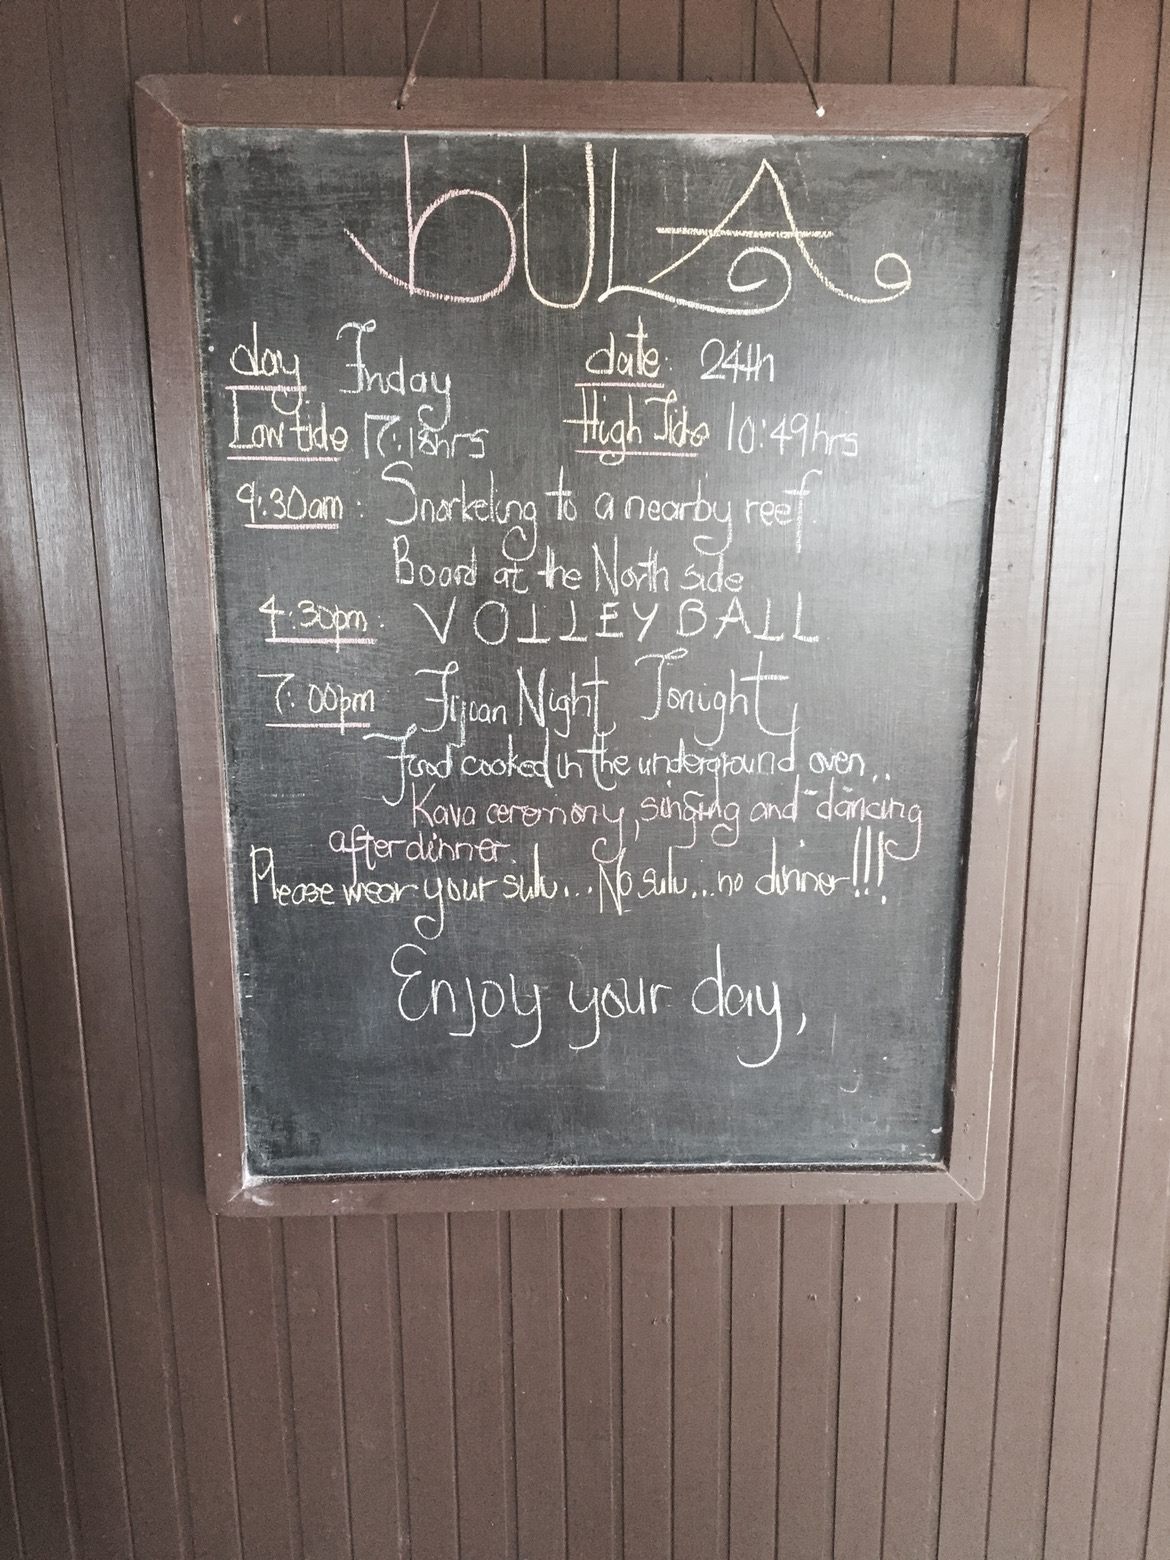 bULA
day Friday date: 24th
Low tide 17:18hrs High Tide 10:49hrs
9:30am: Snorkeling to a nearby reef.
Board at the North side
4:30pm: VOLLEYBALL
7:00pm Fijian Night Tonight
Food cooked in the underground oven..
Kava ceremony, singing and dancing
after dinner.
Please wear your sulu... No sulu...no dinner!!!
Enjoy your day,